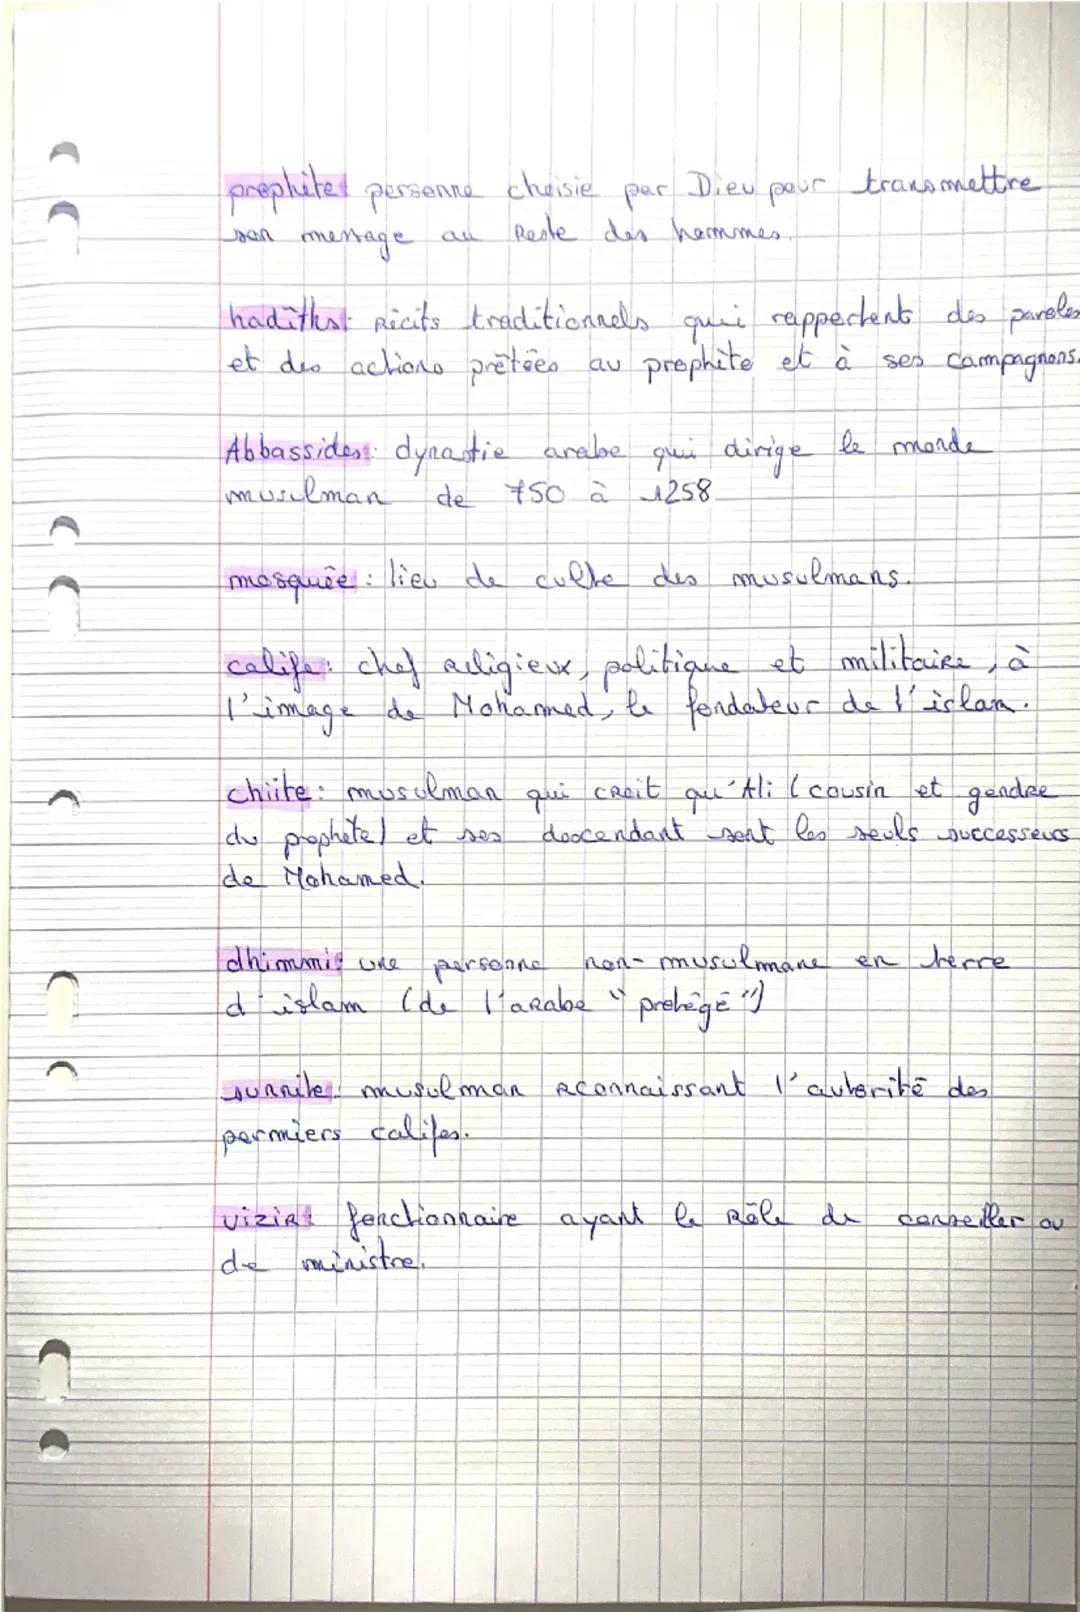 prophète: personne choisie par Dieu pour transmettre
son message au Reste des hommes.
hadîths: Récits traditionnels qui rapportent des paroles
et des actions prêtées au prophète et à ses compagnons.
Abbassides: dynastie arabe qui dirige le monde
musulman de 750 à 1258
mosquée: lieu de culte des musulmans.
calife: chef religieux, politique et militaire, à
l'image de Mohamed, le fondateur de l'islam.
chiite: musulman qui croit qu'Ali (cousin et gendre
du prophète) et ses descendant sont les seuls successeurs
de Mohamed.
dhimmi: une personne non-musulmane en terre
d'islam (de l'arabe "protégé")
sunnite: musulman reconnaissant l'autorité des
permiers califes.
vizir: fonctionnaire ayant le Rôle de conseiller ou
de ministre.